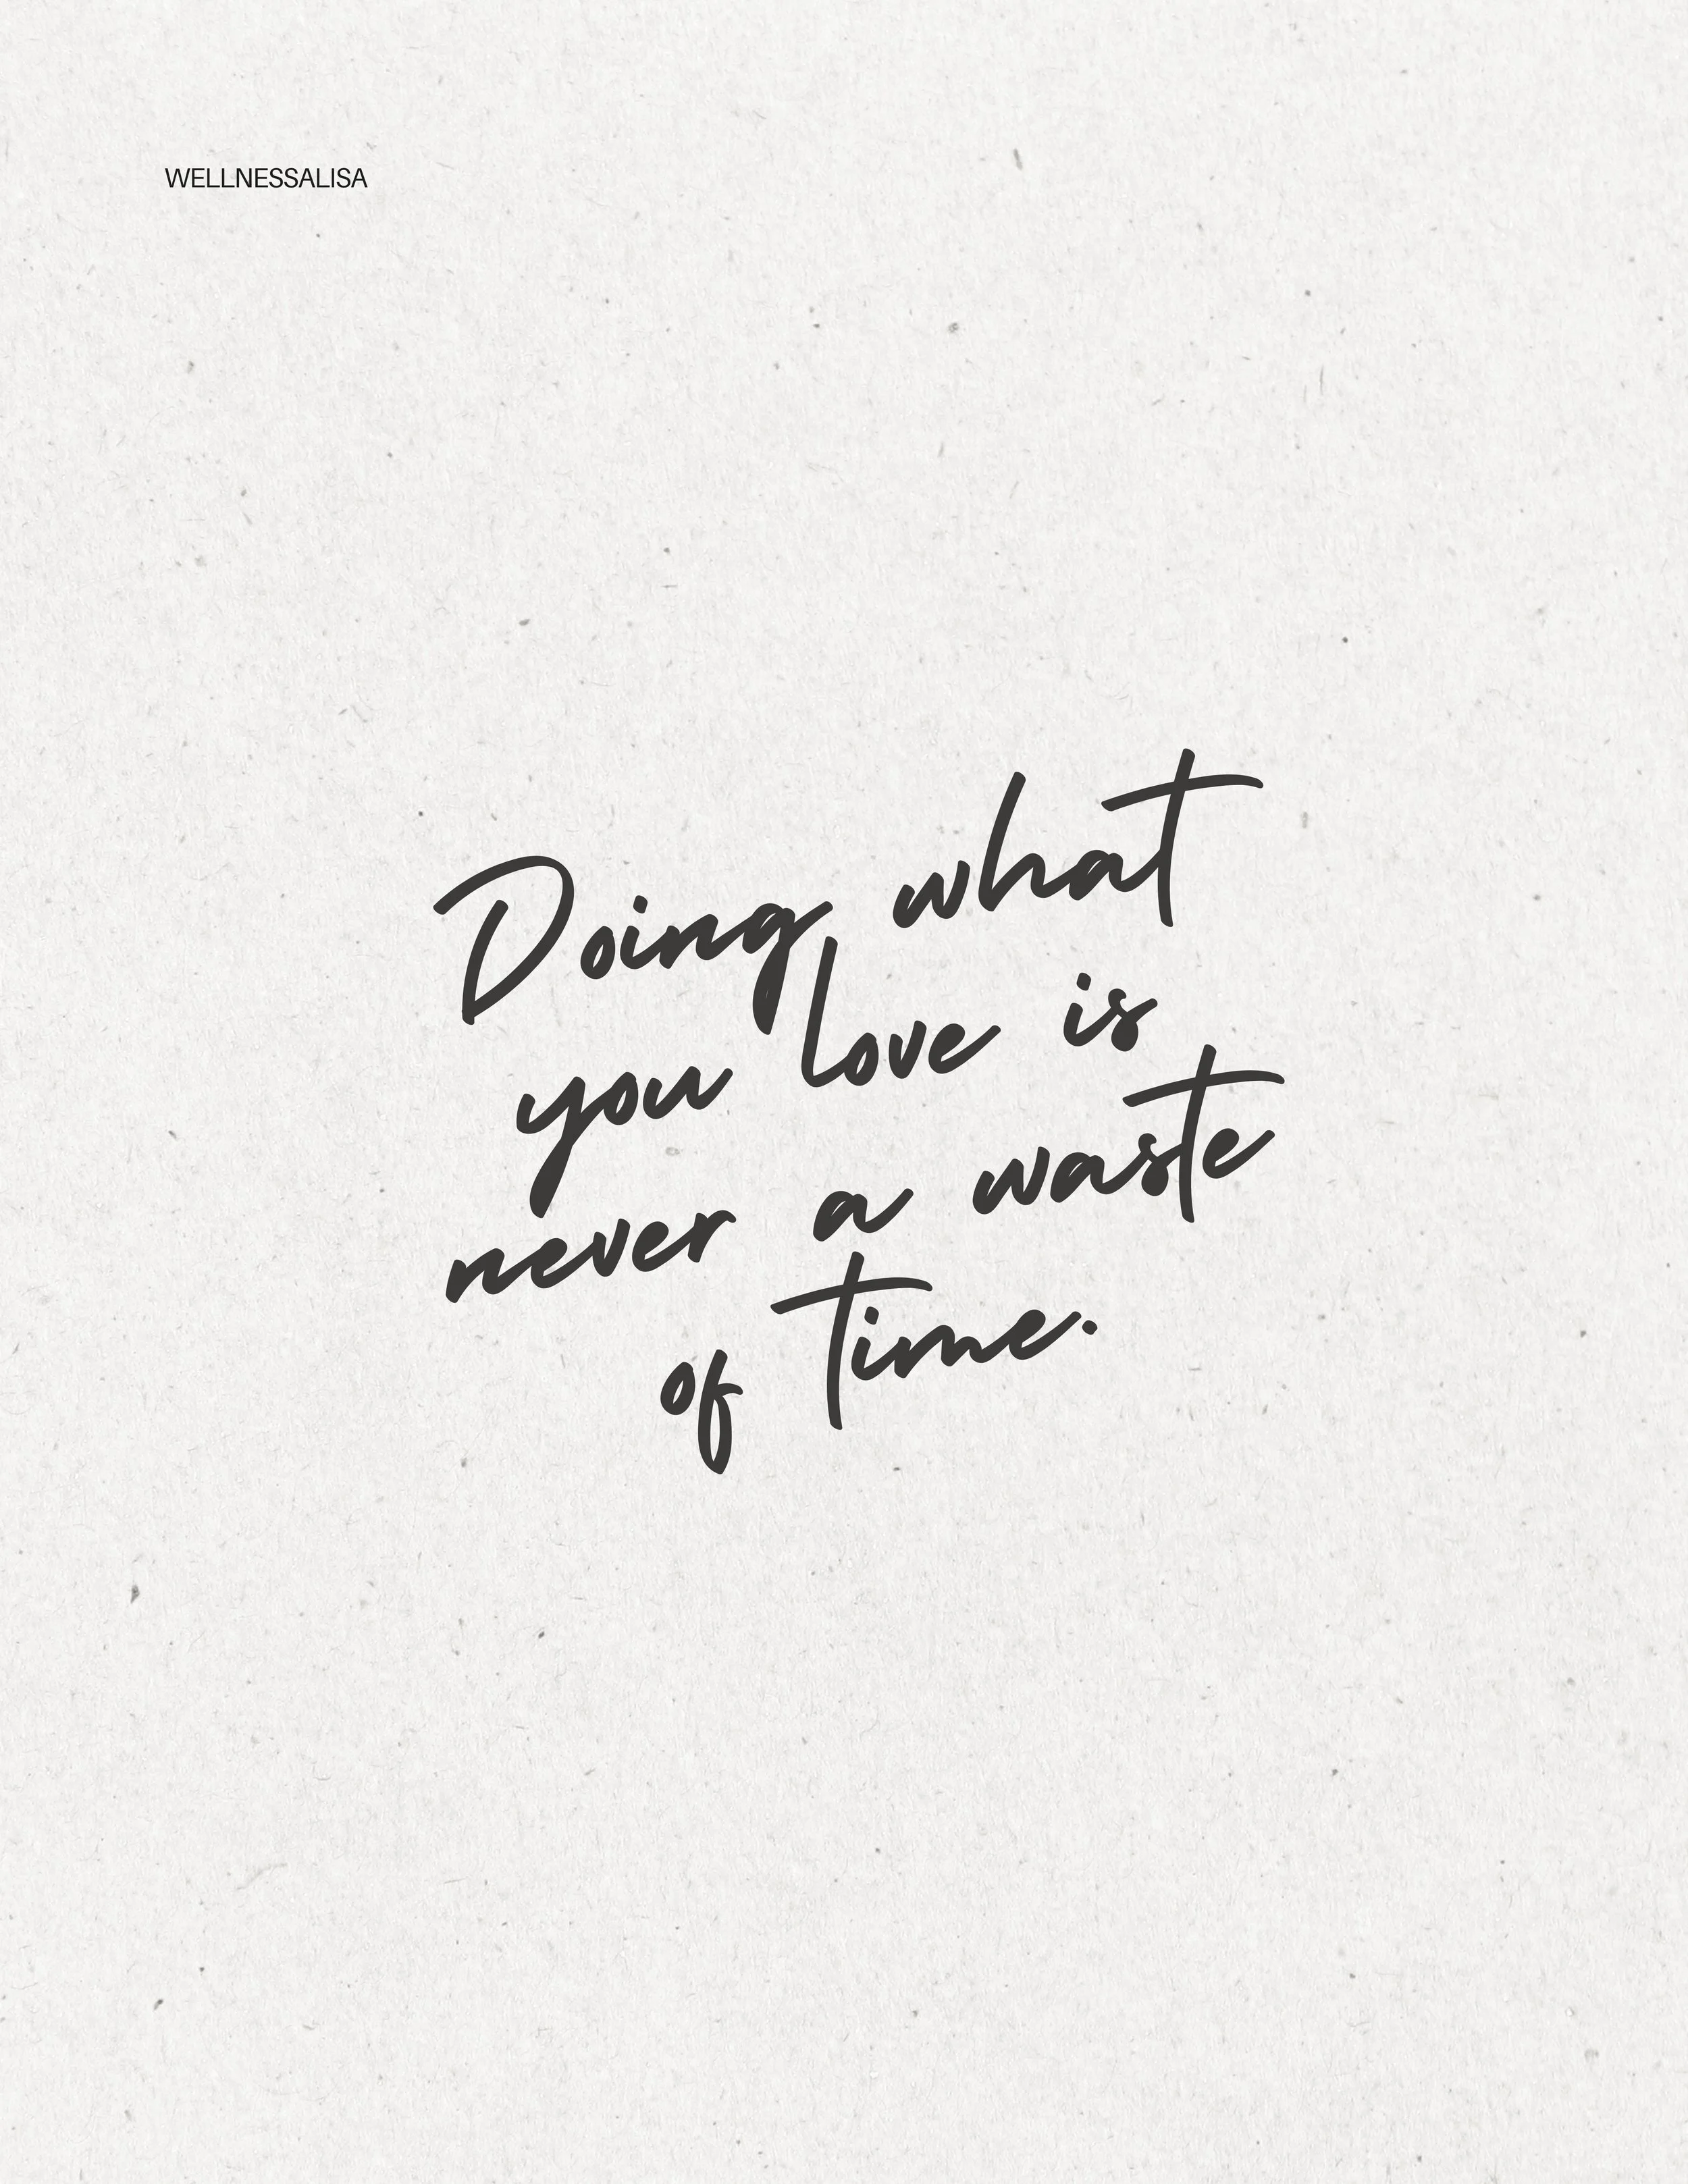 WELLNESSALISA
Doing what
you love is
never a waste
of time.